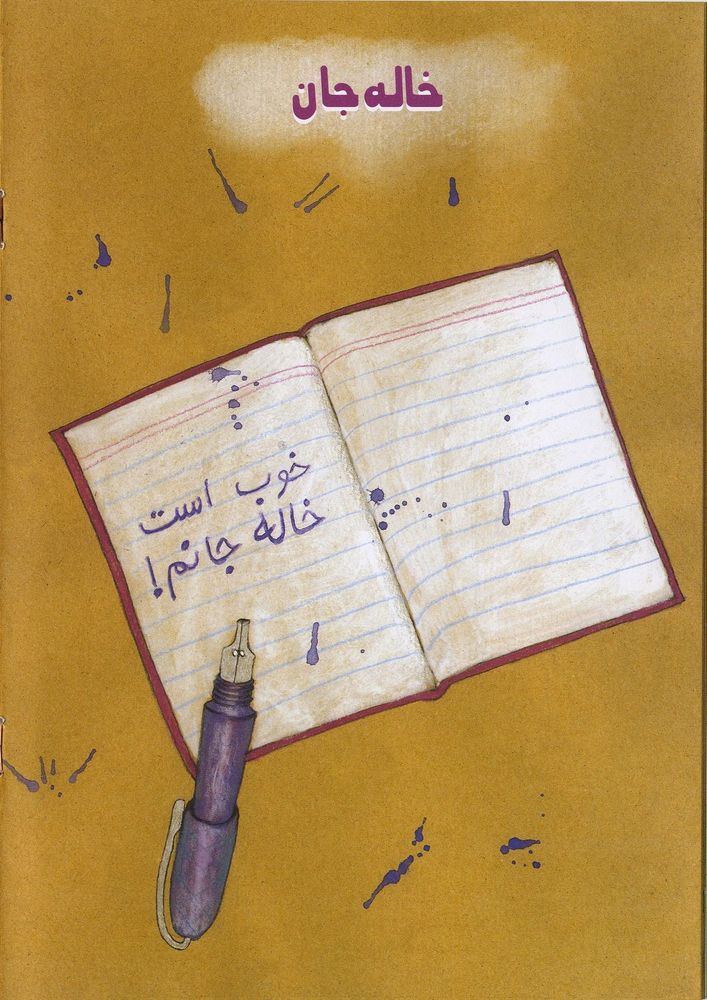 خاله‌جان
خوب است
خاله جانم!